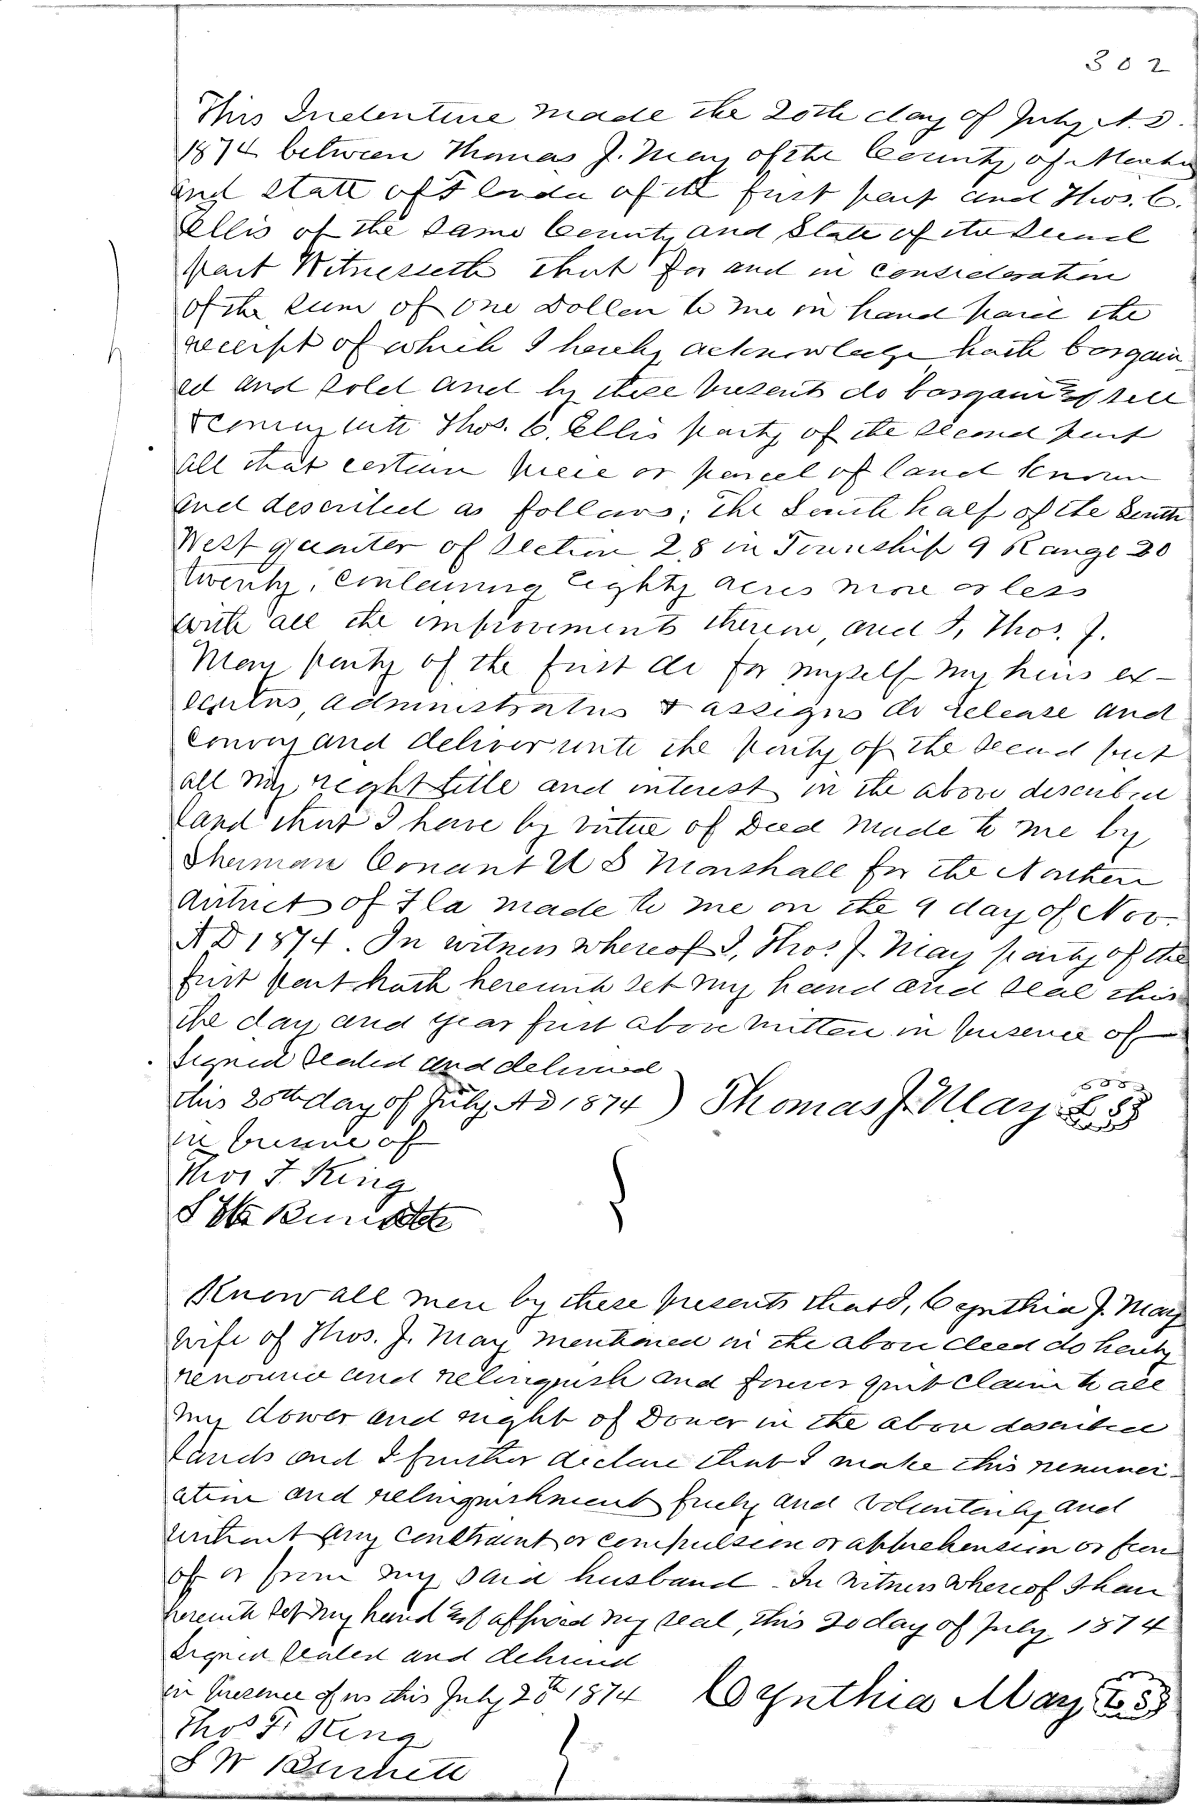 302
This Indenture made the 20th day of July A.D.
1874 between Thomas J. May of the County of Alachua
and state of Florida of the first part and Thos. C.
Ellis of the same County and State of the second
part Witnesseth that for and in consideration
of the sum of one Dollar to me in hand paid the
receipt of which I hereby acknowledge hath bargain-
ed and sold and by these presents do bargain & sell
& convey unto Thos. C. Ellis party of the second part
all that certain piece or parcel of land known
and described as follows; The South half of the South
West quarter of Section 28 in Township 9 Range 20
twenty, containing eighty acres more or less
with all the improvements therein, and I, Thos. J.
May party of the first do for myself my heirs ex-
ecutors, administrators & assigns do release and
convey and deliver unto the party of the second part
all my right title and interest in the above described
land that I have by virtue of Deed made to me by
Sherman Conant U S Marshall for the Northern
district of Fla made to me on the 9 day of Nov.
A D 1874. In witness whereof I, Thos. J. May party of the
first part hath hereunto set my hand and seal this
the day and year first above written in presence of
Signed sealed and delivered
this 20th day of July A D 1874 ) Thomas J. May L S
in presence of
Thos F. King
S W Burnett
Know all men by these presents that I, Cynthia J. May
wife of Thos. J. May mentioned in the above deed do hereby
renounce and relinquish and forever quit claim to all
my dower and right of Dower in the above described
lands and I further declare that I make this renunci-
ation and relinquishment freely and voluntarily and
without any constraint or compulsion or apprehension or fear
of or from my said husband. In witness whereof I have
hereunto set my hand & affixed my seal, this 20 day of July 1874
Signed sealed and delivered
in presence of us this July 20th 1874 Cynthia May L S
Thos F. King
S W Burnett